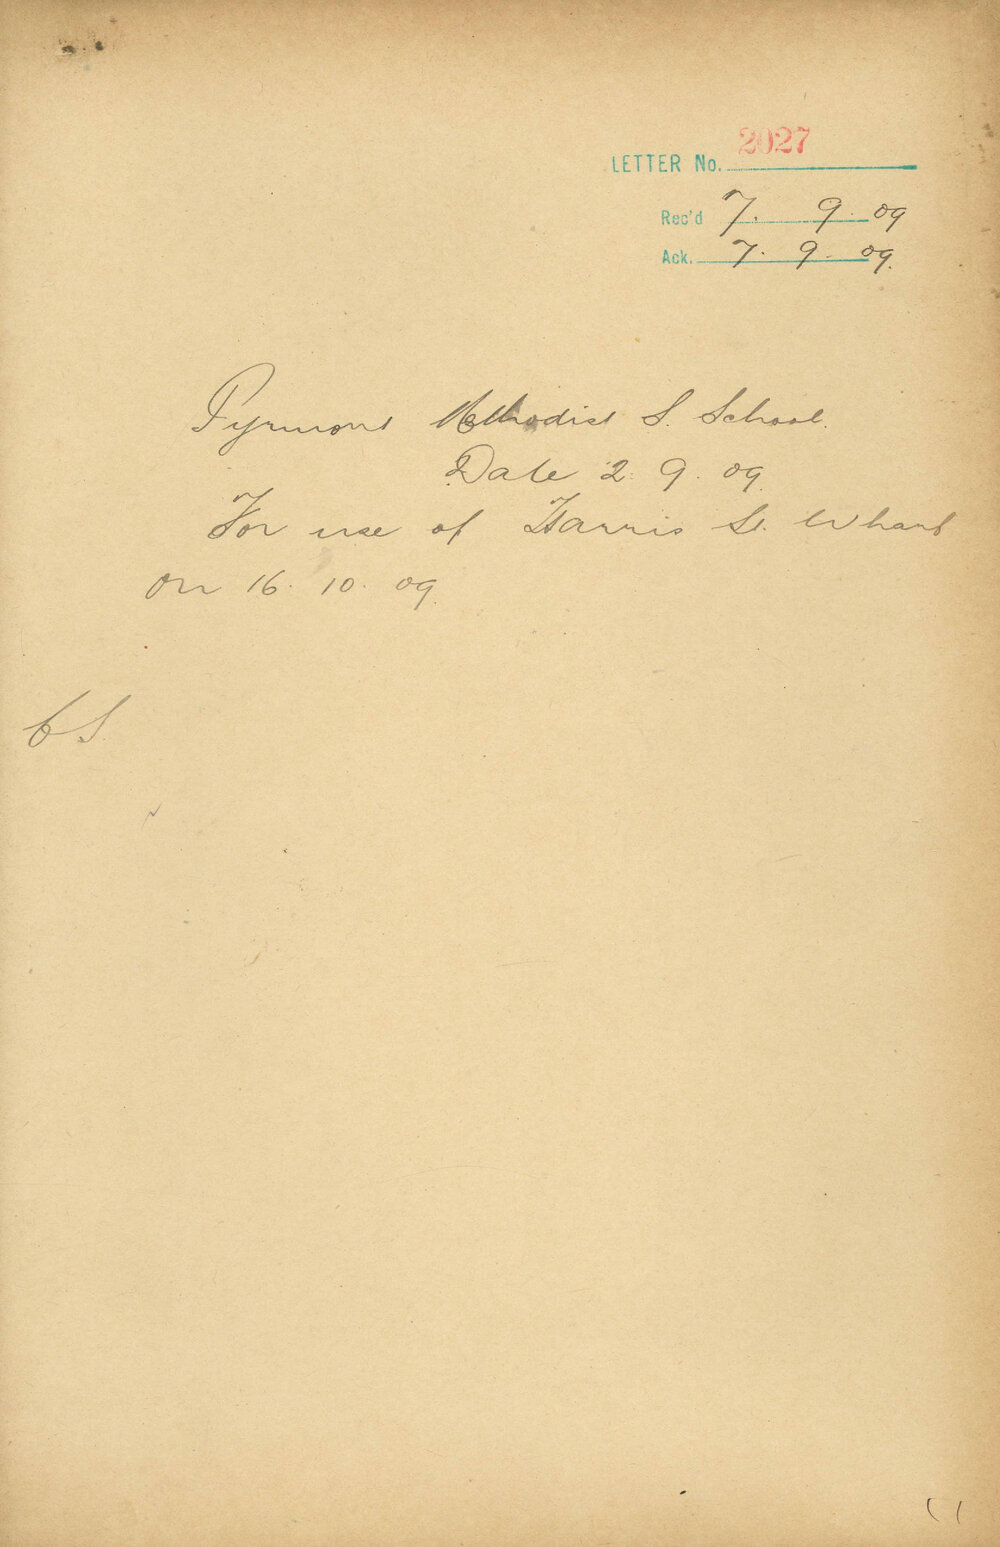 2027
LETTER No.
Rec'd 7. 9. 09
Ack. 7. 9. 09.
Pyrmont Methodist S. School.
Date 2. 9. 09.
For use of Harris St. Wharf
on 16. 10. 09.
CS.